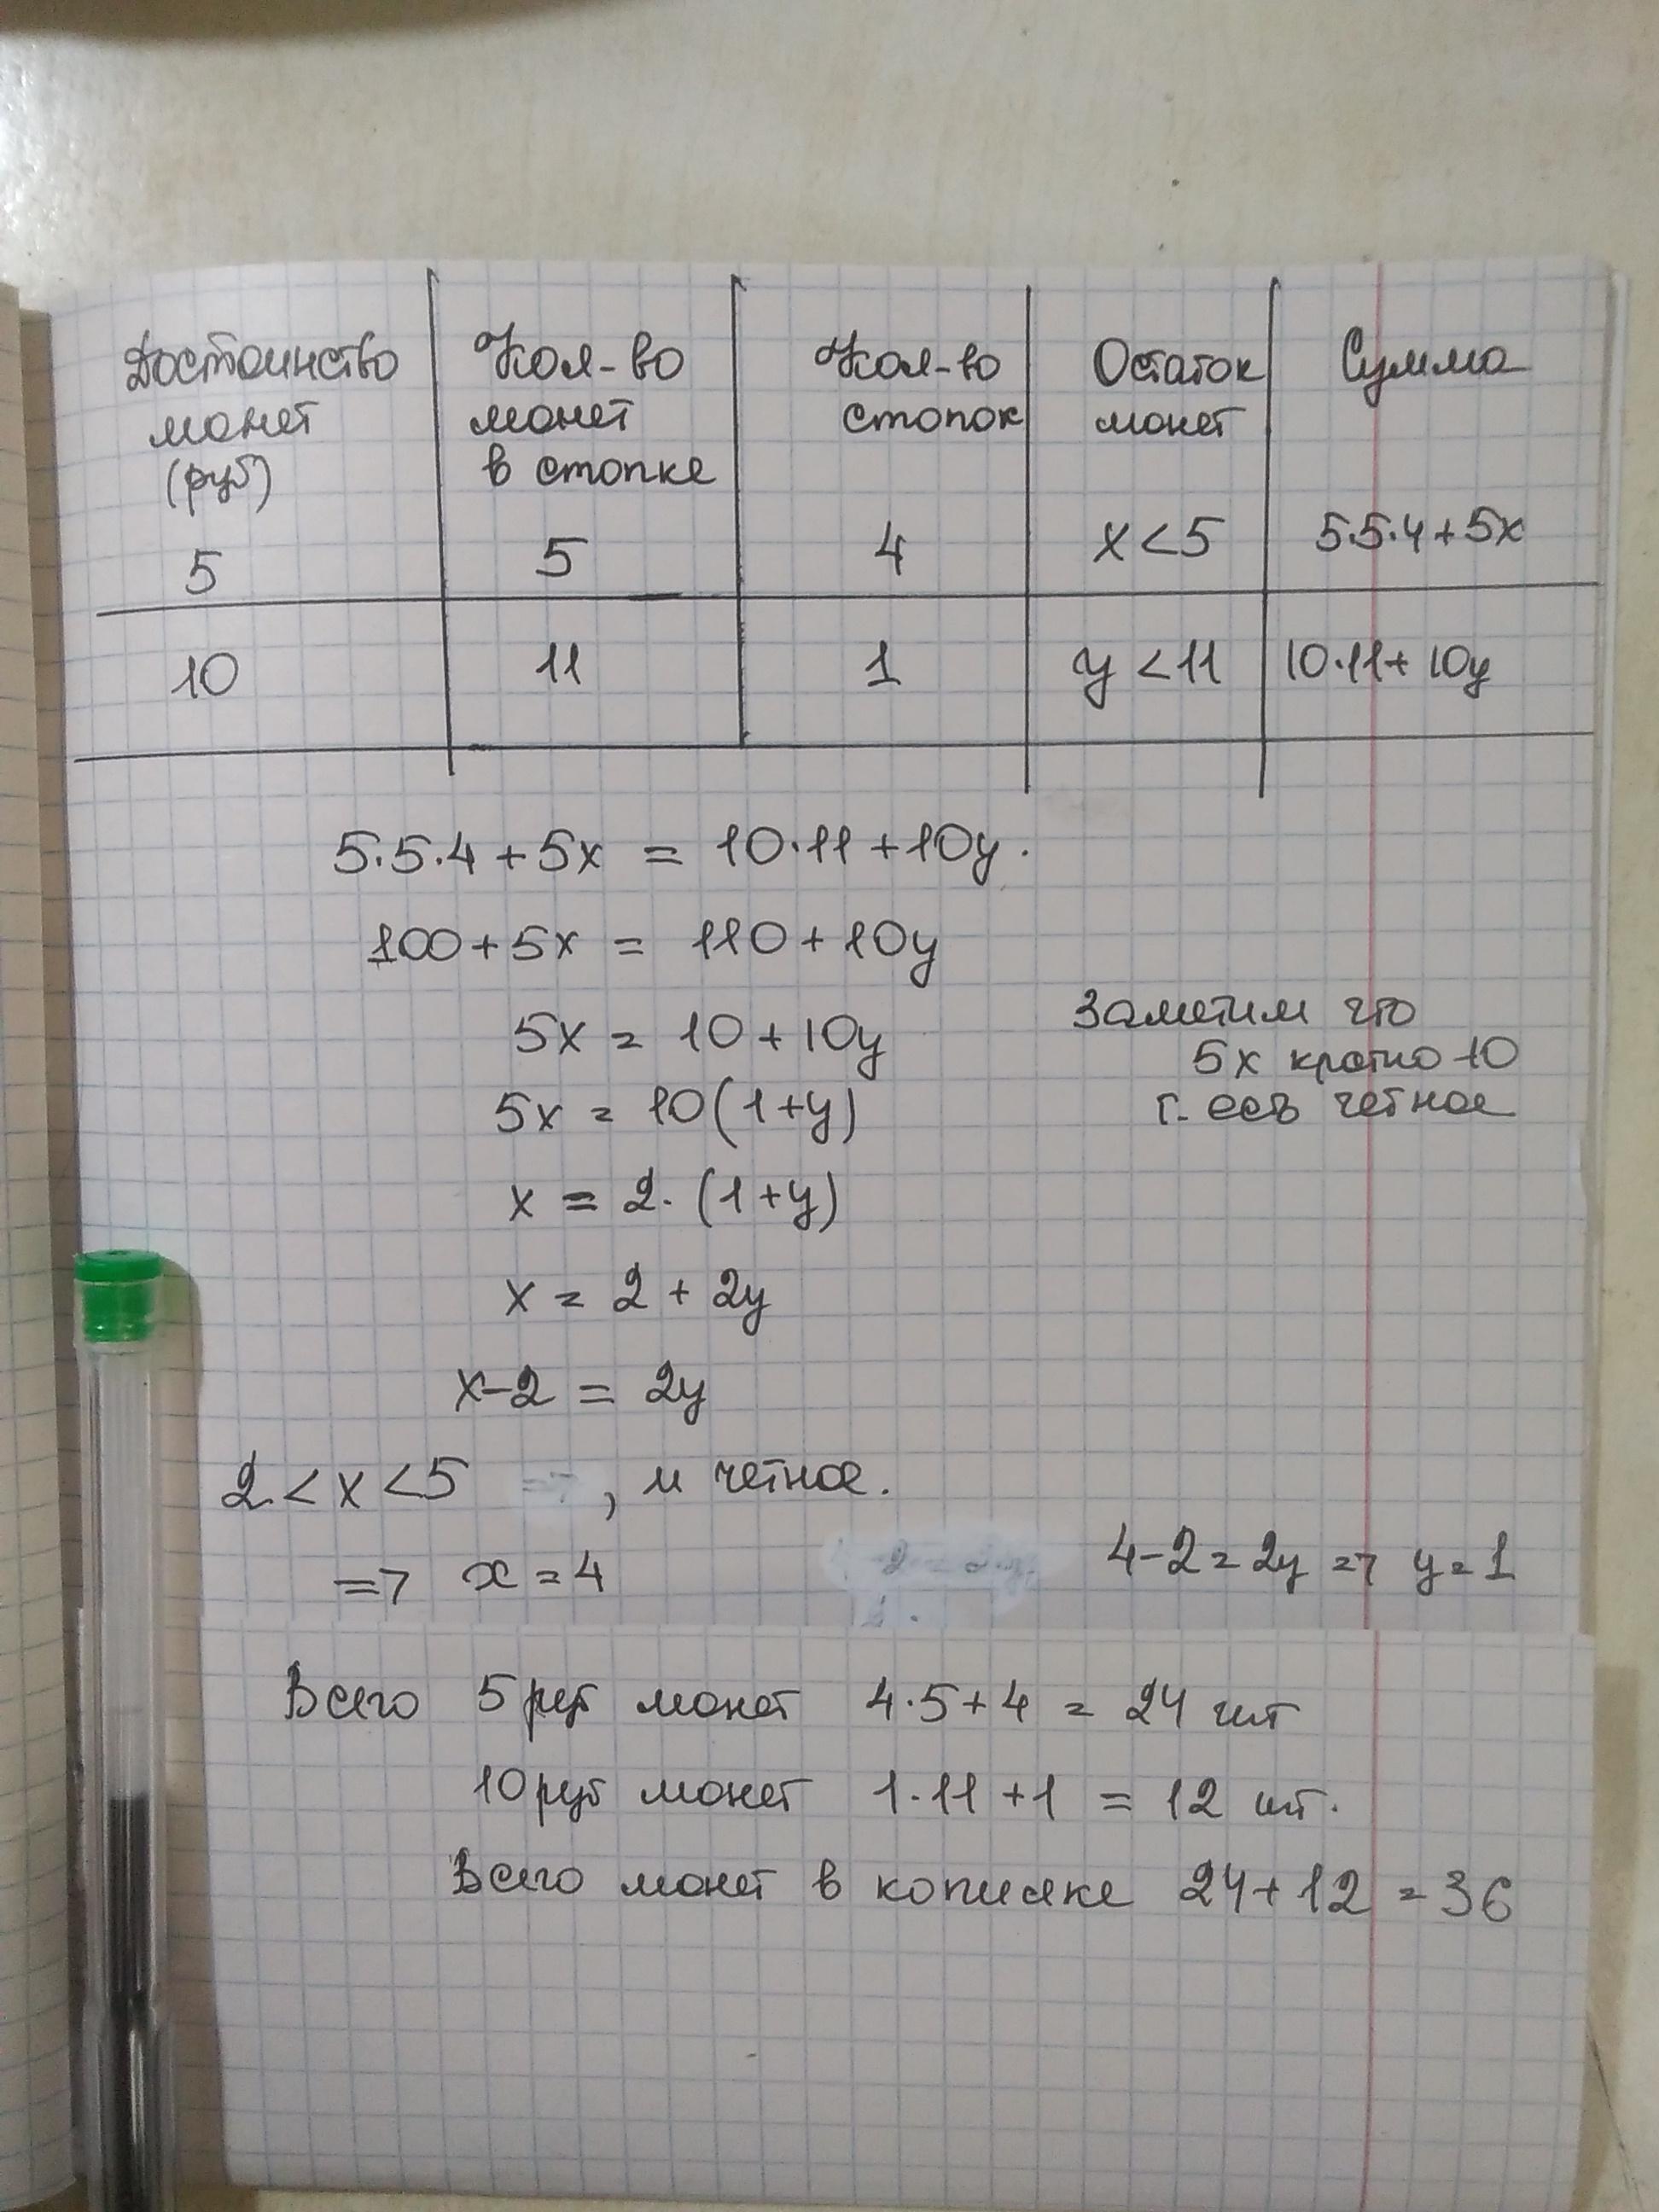 Достоинство монет (руб) Кол-во монет в стопке Кол-во стопок Остаток монет Сумма
5 5 4 x<5 5·5·4+5x
10 11 1 y<11 10·11+10y
5·5·4+5x = 10·11+10y.
100+5x = 110+10y
5x = 10+10y
Заметим что
5x кратно 10
т. есть четное
5x = 10(1+y)
x = 2·(1+y)
x = 2 + 2y
x-2 = 2y
2<x<5 , и четное.
=> x=4
4-2=2y => y=1
Всего 5 руб монет 4·5+4 = 24 шт
10 руб монет 1·11+1 = 12 шт.
Всего монет в копилке 24+12 = 36